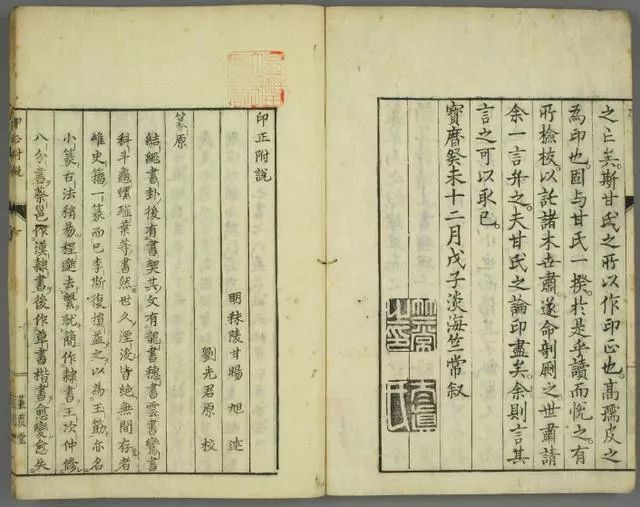 之亡矣。斯甘氏之所以作印正也。高孺皮之
為印也。固与甘氏一揆。於是乎讀而悅之。有
所撿挍以託諸木世肅遂命剞劂之世肅請
余一言弁之。夫甘氏之論印盡矣。余則言其
言之可以取已。
寶曆癸未十二月戊子淡海竺常叙
竺常之印
印正附說
明秣陵甘暘旭述
劉先君原校
篆原
結繩畫卦後有書契其文有龍書穗書雲書鸞書
科斗龜螺薤葉等書然世久湮沒皆絕無聞存者
雄史籀一篆而已李斯復損益之以為玉筯亦名
小篆右法稍易程邈去繁就簡作隸書王次仲修
八分書蔡邕作漢隸書後作草書楷書愈變愈失
印正附說